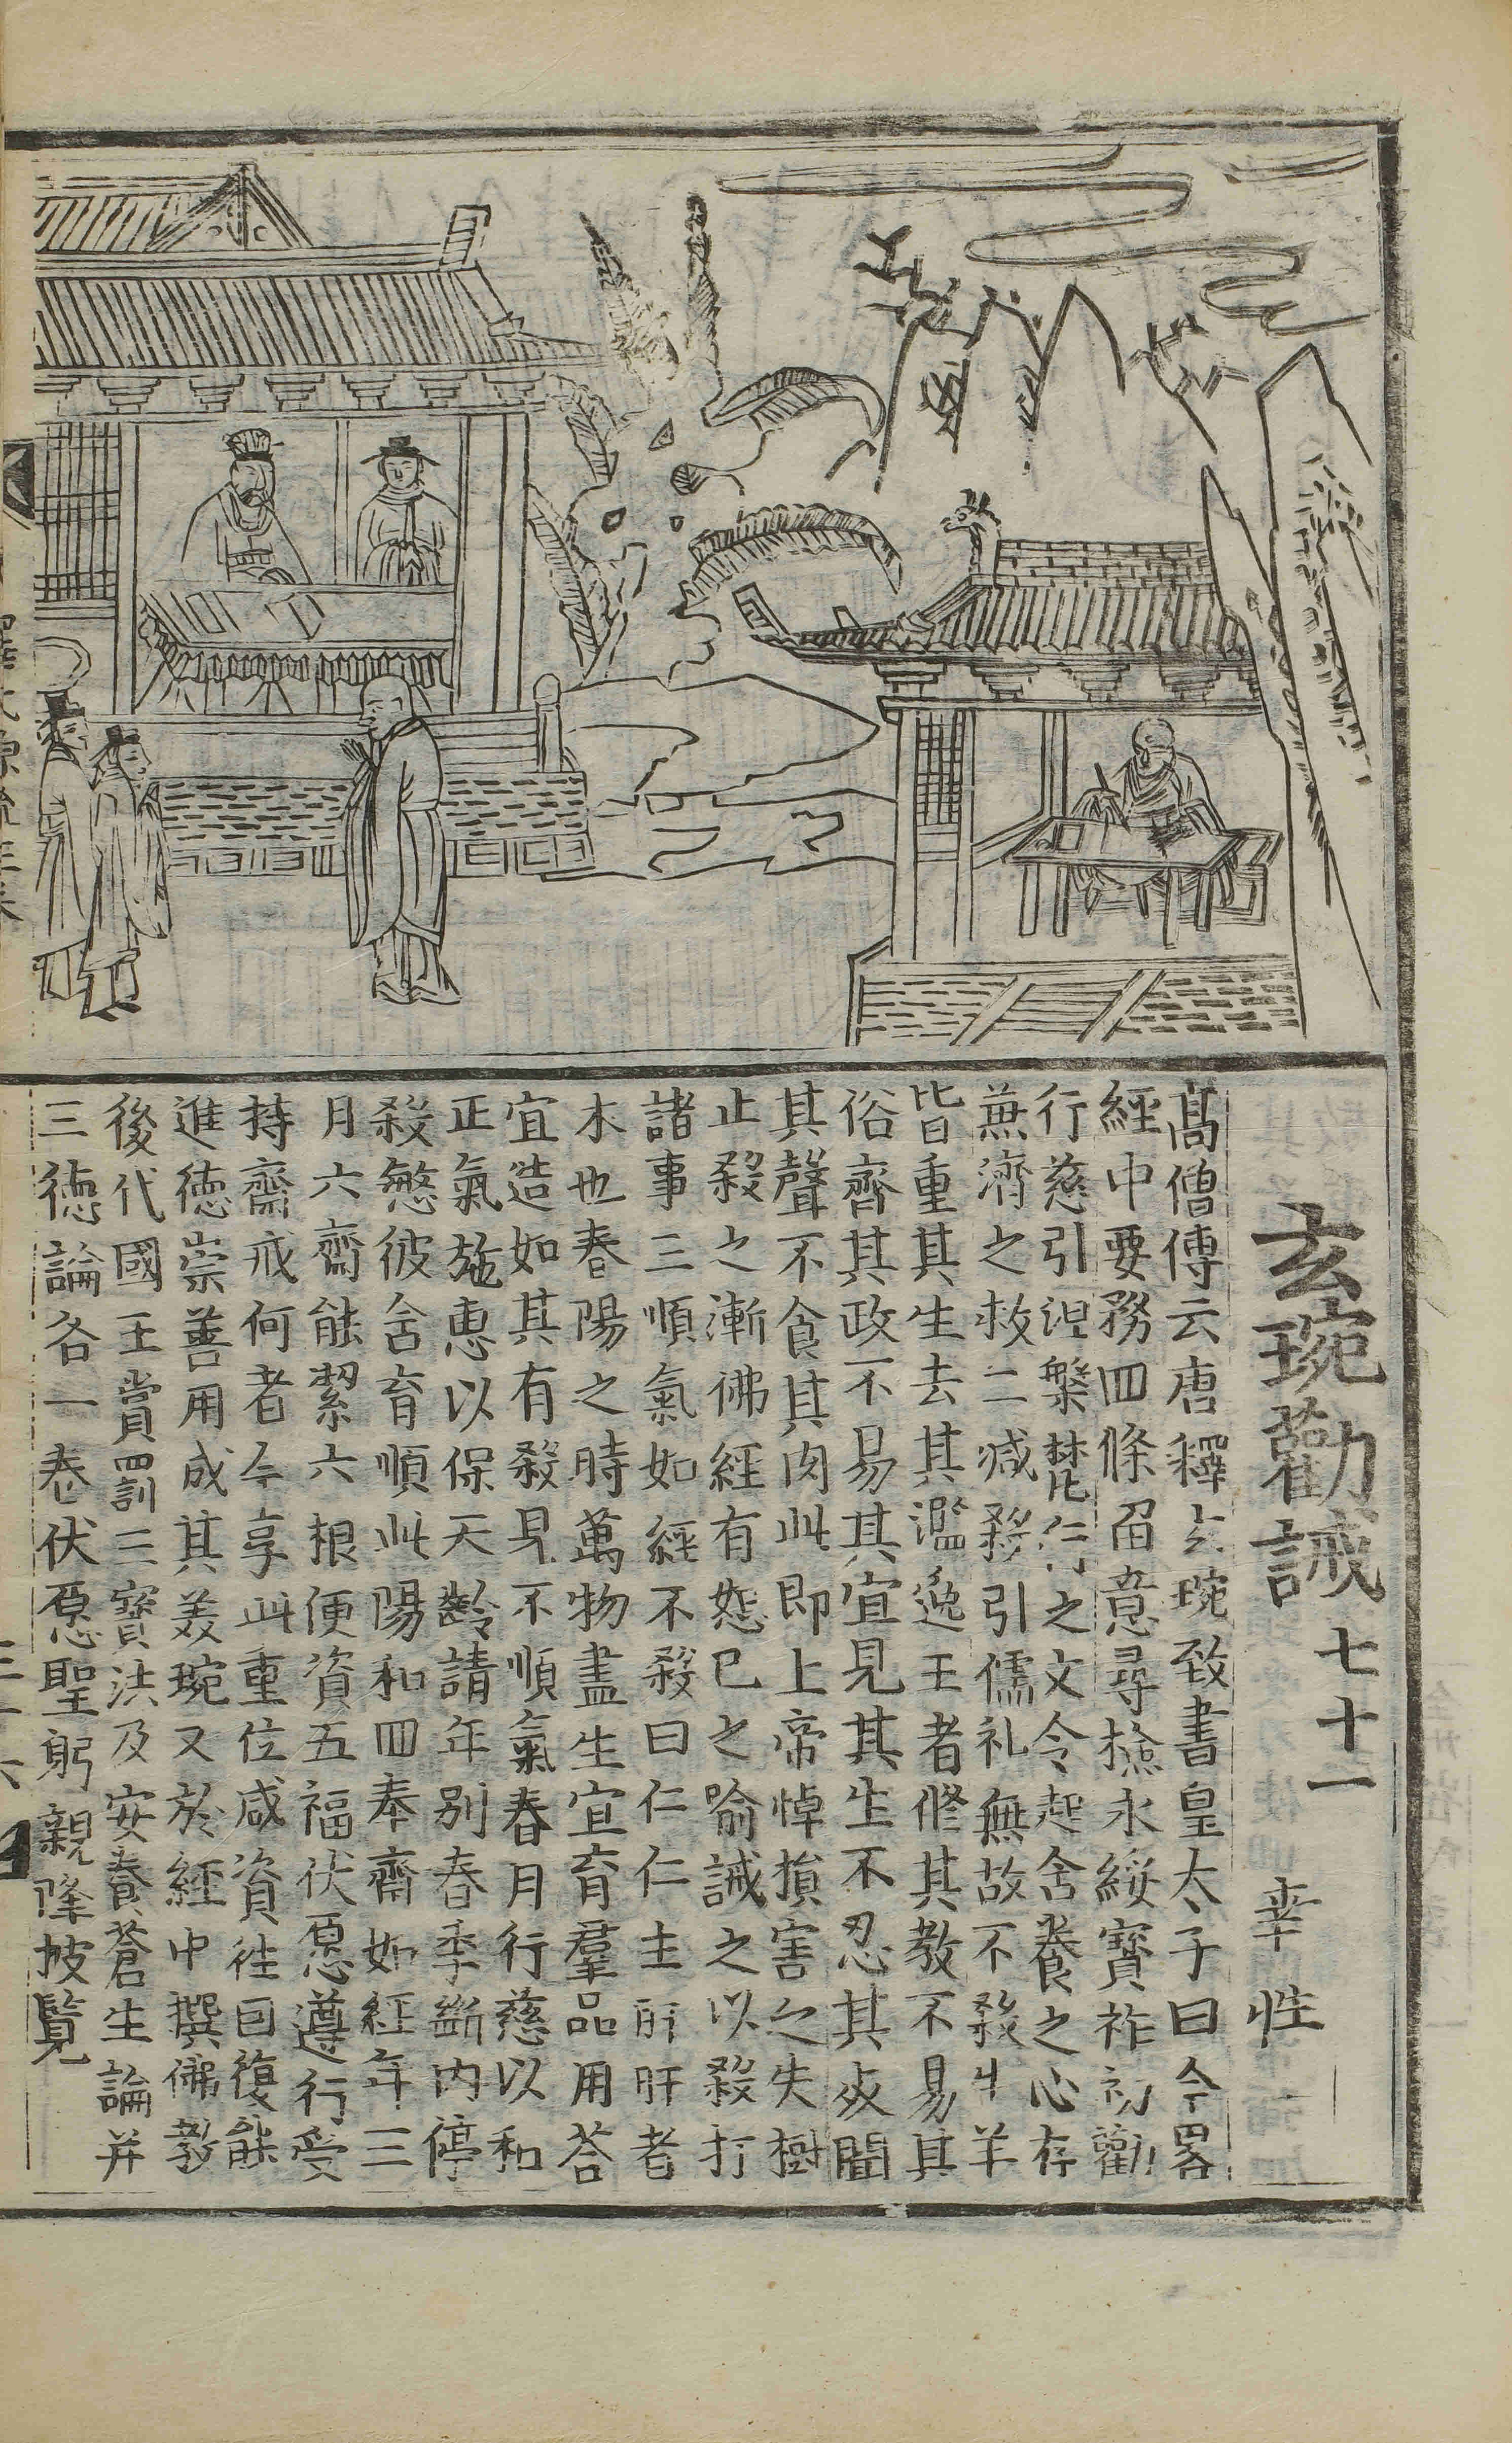 玄琬勸誡 七十一 幸性
髙僧傳云唐釋玄琬致書皇太子曰今畧
經中要務四條留意尋撿永綏寶祚初勸
行慈引涅槃梵行之文令起舍養之心存
兼濟之救二減殺引儒礼無故不殺牛羊
皆重其生去其濫逸王者修其教不易其
俗齊其政不易其宜見其生不忍其死聞
其聲不食其肉此即上帝悼損害之失樹
止殺之漸佛經有恕已之喻誡之以殺打
諸事三順氣如經不殺曰仁仁主肝肝者
木也春陽之時萬物盡生宜育羣品用荅
宜造如其有殺見不順氣春月行慈以和
正氣施惠以保天齡請年別春季斷內停
殺慜彼含育順此陽和四奉齋如經年三
月六齋能絜六根便資五福伏愿遵行受
持齋戒何者今享此重位咸資徃因復能
進德崇善用成其美琬又於經中撰佛教
後代國王賞罰三寳洪及安養蒼生論并
三德論各一卷伏愿聖躬親隆披覽